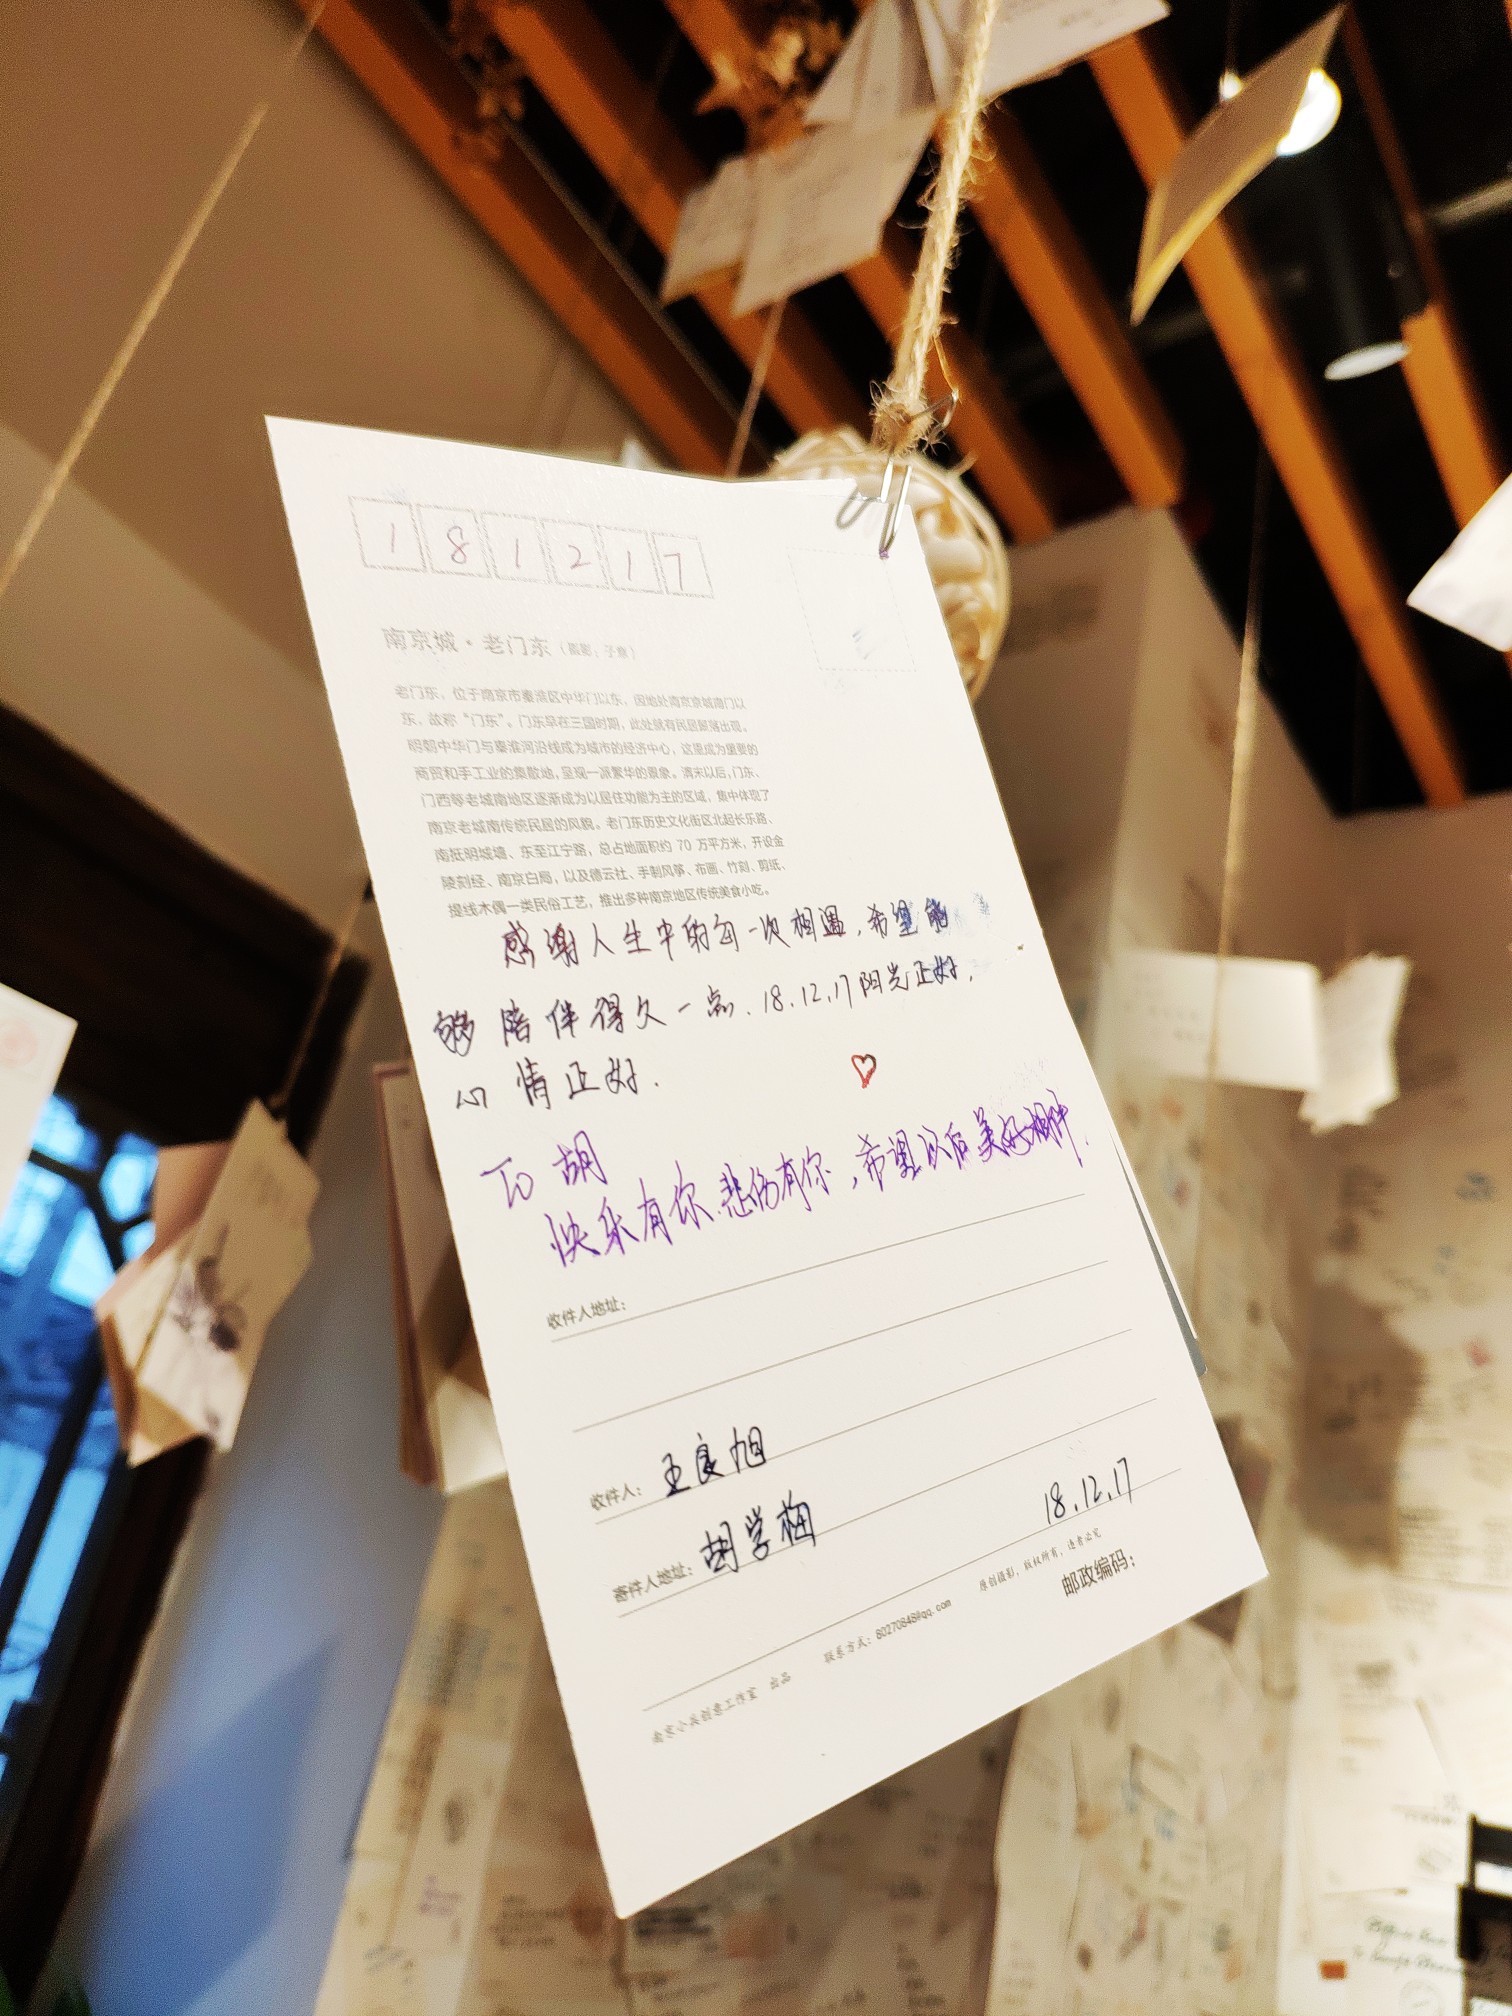 181217
南京城·老门东（摄影：子意）
老门东，位于南京市秦淮区中华门以东，因地处南京京城南门以
东，故称“门东”。门东早在三国时期，此处就有民居部落出现。
明朝中华门与秦淮河沿线成为城市的经济中心，这里成为重要的
商贸和手工业的集散地，呈现一派繁华的景象。清末以后，门东、
门西等老城南地区逐渐成为以居住功能为主的区域，集中体现了
南京老城南传统民居的风貌。老门东历史文化街区北起长乐路、
南抵明城墙、东至江宁路，总占地面积约 70 万平方米，开设金
陵刻经、南京白局，以及德云社、手制风筝、布画、竹刻、剪纸、
提线木偶一类民俗工艺，推出多种南京地区传统美食小吃。
感谢人生中的每一次相遇，希望能
够陪伴得久一点．18.12.17阳光正好，
心情正好．
To 胡
快乐有你．悲伤有你，希望以后美好相伴．
收件人地址：
收件人：王良旭
寄件人地址：胡学梅
18.12.17
南京小兵创意工作室 出品 联系方式：80270848@qq.com 原创摄影，版权所有，违者必究
邮政编码：